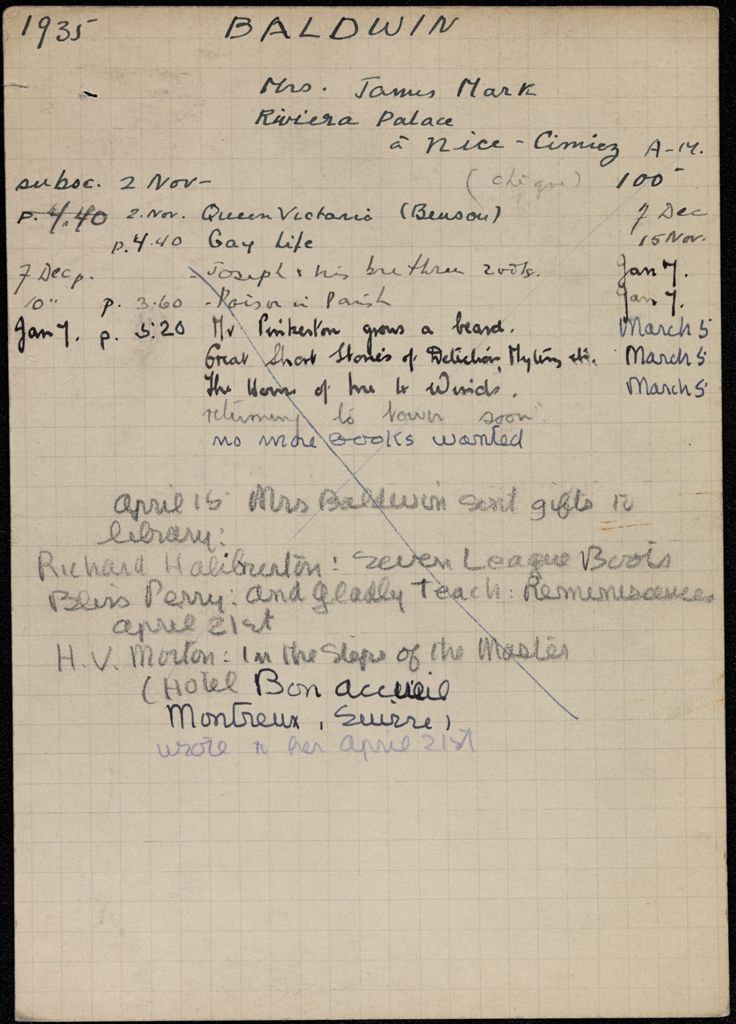 1935 BALDWIN
Mrs. James Mark
Riviera Palace
à Nice-Cimiez A-M.
subsc. 2 Nov- (chèque) 100-
p. 4.40 2. Nov. Queen Victoria (Benson) 7 Dec
p. 4.40 Gay Life 15 Nov.
7 Dec p. - Joseph & his brethren 2 vols. Jan 7.
10" p. 3.60 - Poison in Parish Jan 7.
Jan 7. p. 5.20 Mr Pinkerton grows a beard. March 5
Great Short Stories of Detection, Mystery etc. March 5
The House of the 4 Winds. March 5
returning to town soon
no more books wanted
April 15 Mrs Baldwin sent gifts to
library:
Richard Haliburton: Seven League Boots
Bliss Perry: And Gladly Teach: Reminiscences
April 21st
H.V. Morton: In the Steps of the Master
(Hotel Bon accueil
Montreux, Suisse)
wrote to her April 21st